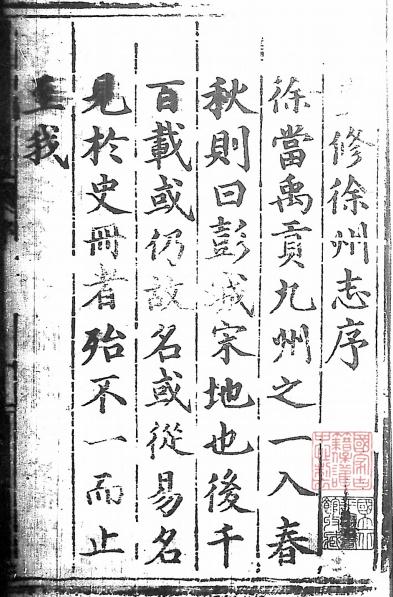 修徐州志序
徐當禹貢九州之一入春
秋則曰彭城宋地也後千
百載或仍故名或從易名
見於史冊者殆不一而止
至我